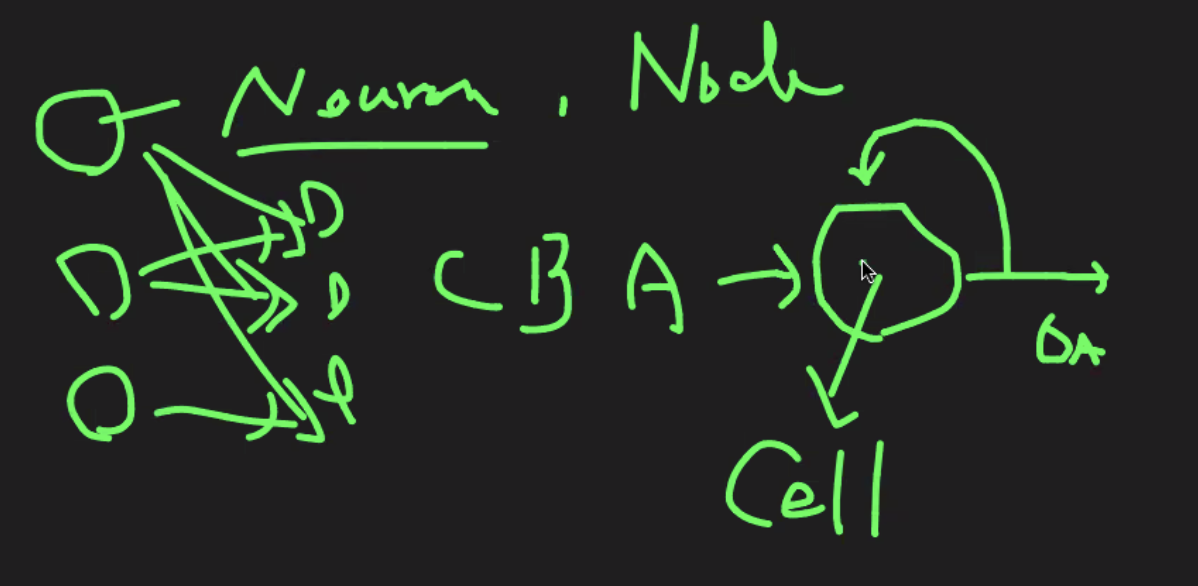 Neuron, Node
C B A
OA
Cell